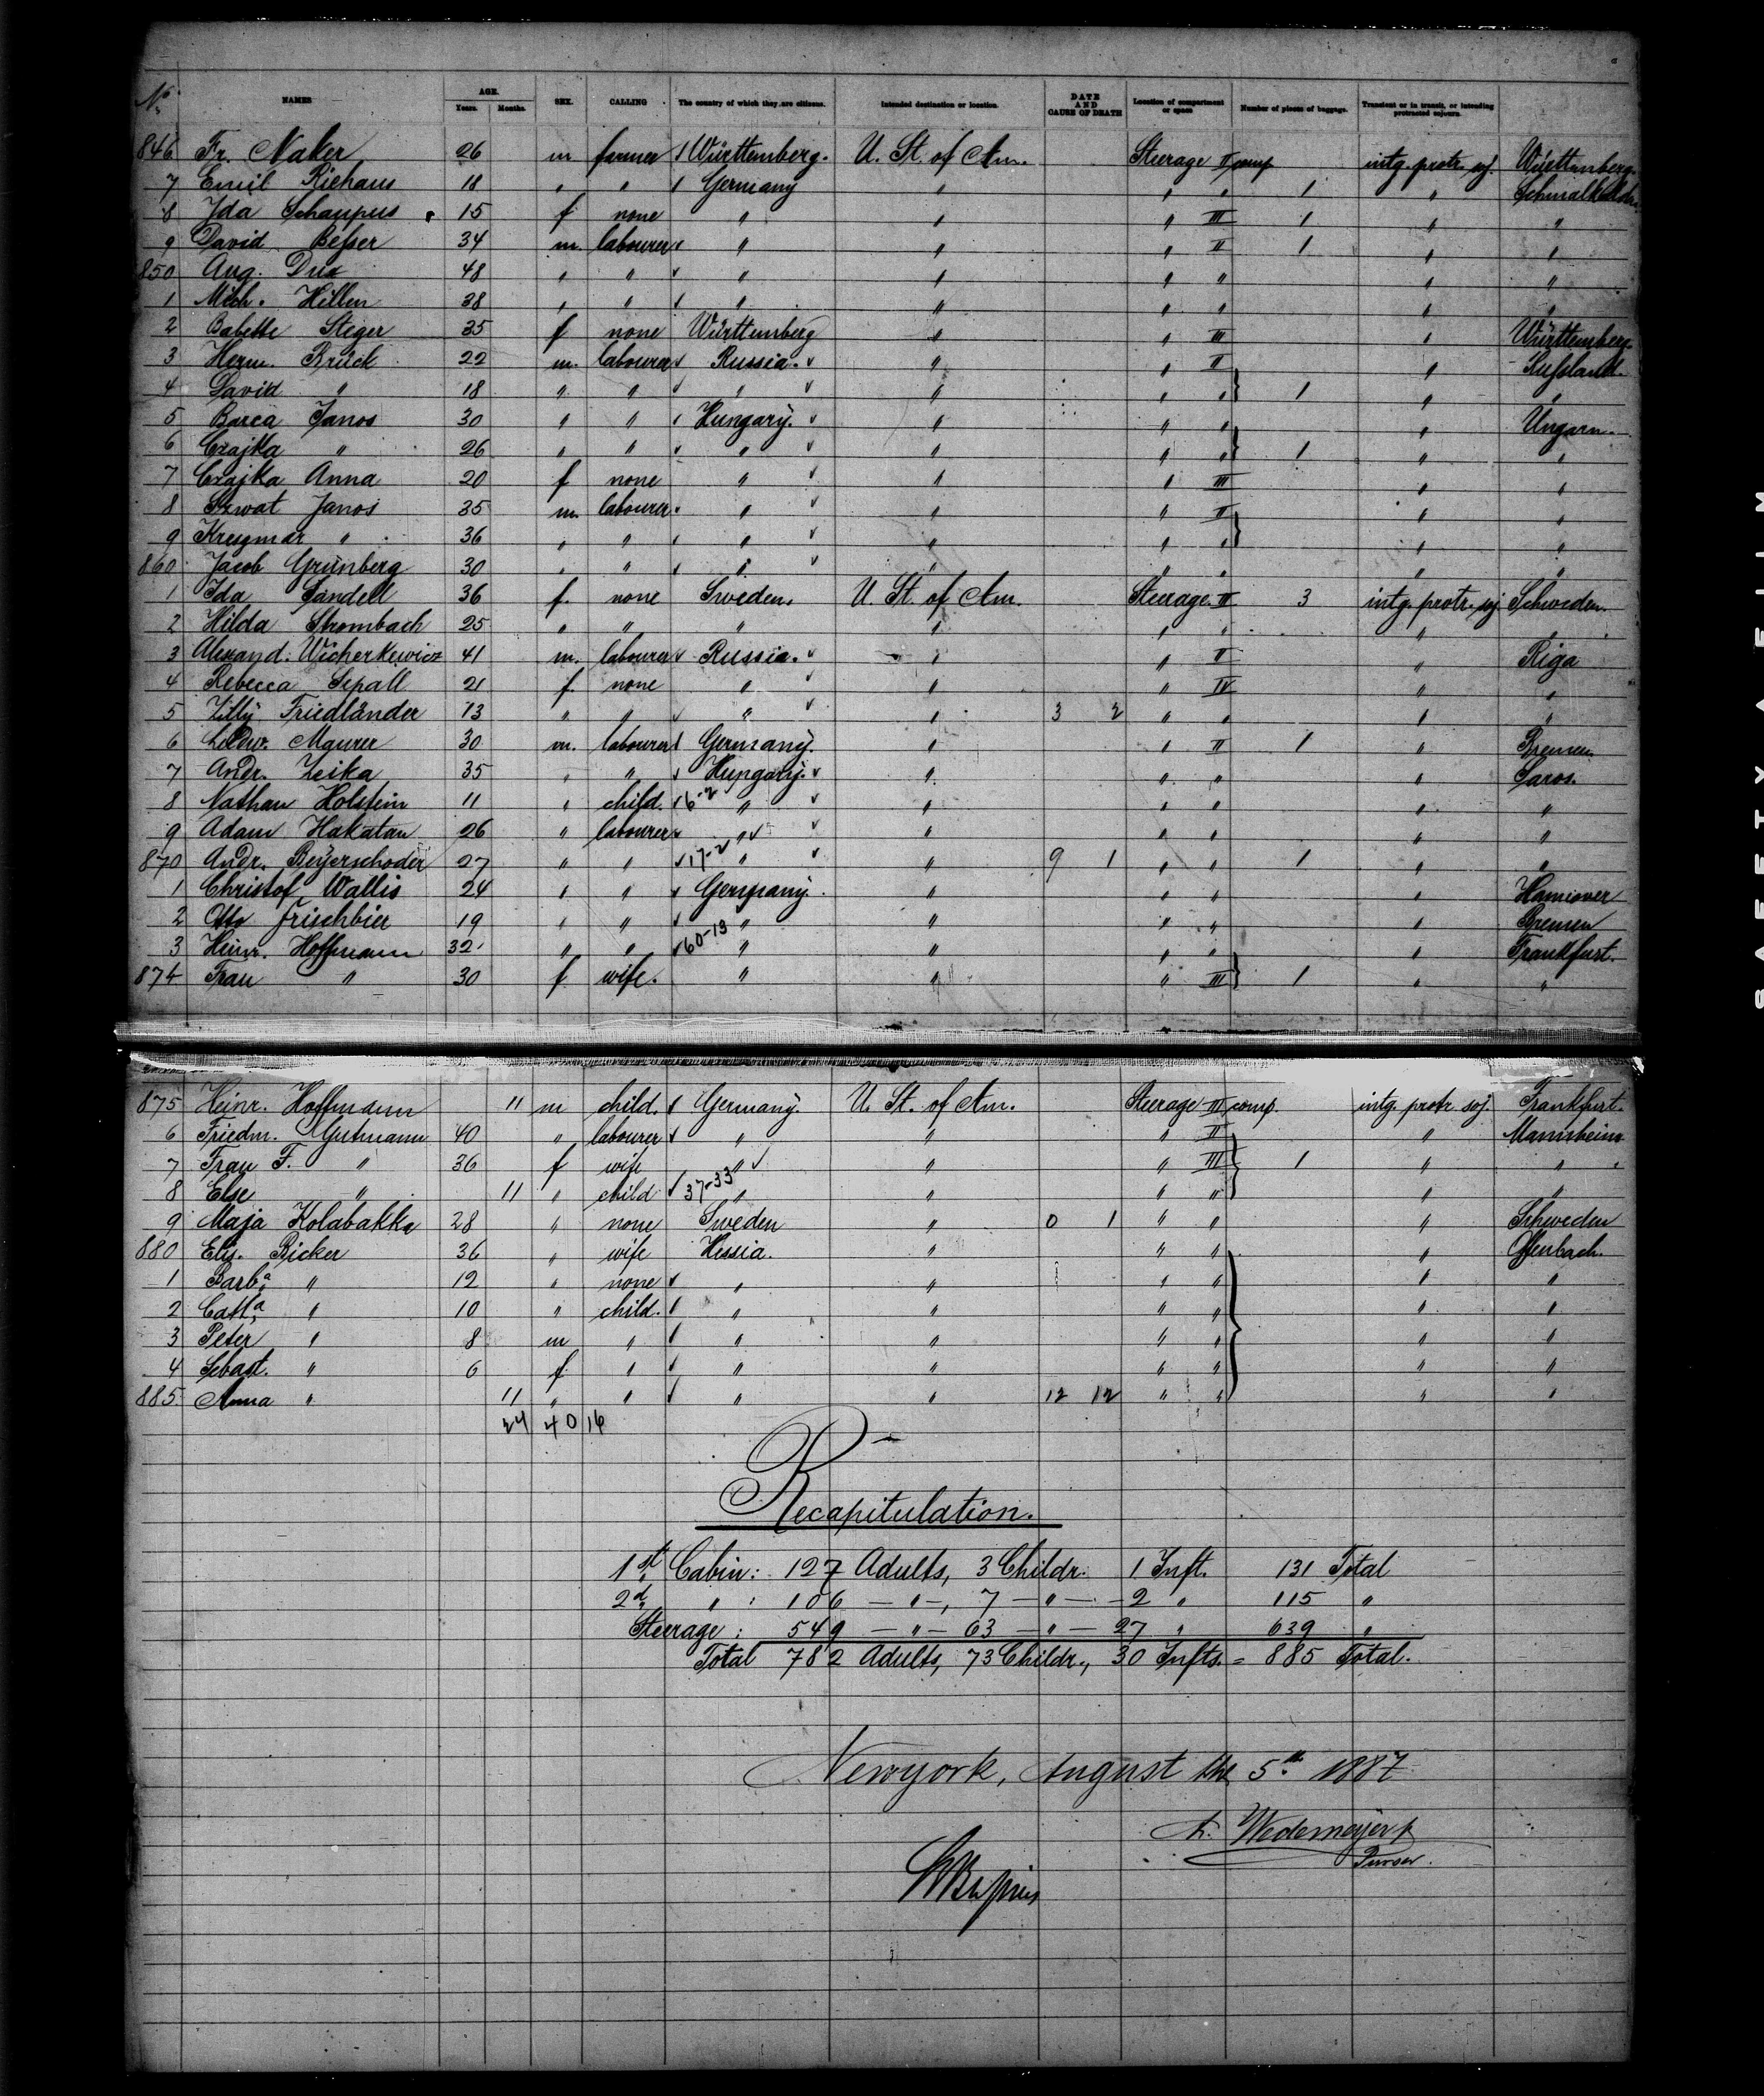 No. NAMES AGE. Years. Months. SEX. CALLING The country of which they are citizens. Intended destination or location. DATE AND CAUSE OF DEATH Location of compartment or space Number of pieces of baggage. Transient or in transit, or intending protracted sojourn.
846 Fr. Naker 26 m farmer Württemberg. U. St. of Am. Steerage II comp intg. protr. soj. Württemberg.
7 Emil Riehaus 18 " " Germany " " " 1 "
8 Ida Schaupus 15 f none " " " III 1 " "
9 David Besser 34 m. labourer " " " II 1 " "
850 Aug. Dux 48 " " " " " " " "
1 Mich. Hillen 38 " " " " " " " "
2 Babette Steger 35 f none Württemberg " " III " Württemberg.
3 Herm. Brück 22 m. labourer Russia. " " II " Russland.
4 David " 18 " " " " " " 1 " "
5 Barca Janos 30 " " Hungary. " " " " Ungarn.
6 Czajka " 26 " " " " " " 1 " "
7 Czajka Anna 20 f none " " " III " "
8 Szwat Janos 35 m. labourer. " " " II " "
9 Kresgmar " 36 " " " " " " " "
860 Jacob Grünberg 30 " " " " " " " "
1 Ida Sandell 36 f. none Sweden. U. St. of Am. Steerage. III 3 intg. protr. soj. Schweden.
2 Hilda Strombach 25 " " " " " " " "
3 Alexand. Wicherkewicz 41 m. labourer Russia. " " II " Riga
4 Rebecca Sepall 21 f. none " " " IV " "
5 Zilly Friedländer 13 " " " " 3 2 " " " "
6 Ludw. Maurer 30 m. labourer Germany. " " II 1 " Bremen
7 Andr. Zeika 35 " " Hungary. " " " " Saros.
8 Nathan Holstein 11 " child. 6-2 " " " " " "
9 Adam Hakatan 26 " labourer " " " " " "
870 Andr. Beyerschoder 27 " " 17-2 " " 9 1 " " 1 " "
1 Christof Wallis 24 " " Germany. " " " " Hannover
2 Otto Frischbier 19 " " " " " " " Bremen
3 Heinr. Hoffmann 32 " " 60-13 " " " " " Frankfurt.
874 Frau " 30 f wife. " " " III 1 " "
875 Heinr. Hoffmann 11 m child. Germany. U. St. of Am. Steerage III comp. intg. protr. soj. Frankfurt.
6 Friedm. Gutmann 40 " labourer " " " II " Mannheim
7 Frau F. " 36 f wife " " " III 1 " "
8 Else " 11 " child 37-33 " " " " " "
9 Maja Kolabakka 28 " none Sweden " 0 1 " " " Schweden
880 Elis. Ricker 36 " wife Hessia. " " " " Offenbach.
1 Barba. " 12 " none " " " " " "
2 Catha. " 10 " child. " " " " " "
3 Peter " 8 m " " " " " " "
4 Sebast. " 6 f " " " " " " "
885 Anna " 11 " " " " 12 12 " " " "
24 40 16
Recapitulation.
1st Cabin: 127 Adults, 3 Childr. 1 Inft. 131 Total
2d " : 106 — " —, 7 — " — 2 " 115 "
Steerage : 549 — " — 63 — " — 27 " 639 "
Total 782 Adults, 73 Childr., 30 Infts. = 885 Total.
Newyork, August the 5th 1887
Wedemeyer
Purser.